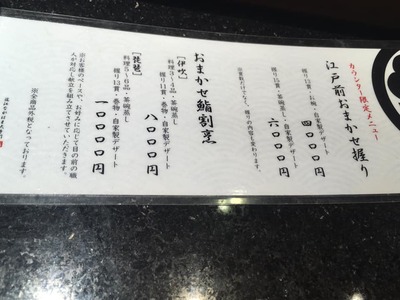 カウンター限定メニュー
江戸前おまかせ握り
握り12貫・お椀・自家製デザート
四〇〇〇円
握り15貫・茶碗蒸し・自家製デザート
六〇〇〇円
おまかせ鮨割烹
【伊吹】
料理3〜4品・茶碗蒸し
握り11貫・巻物・自家製デザート
八〇〇〇円
【琵琶】
料理5〜6品・茶碗蒸し
握り13貫・巻物・自家製デザート
一〇〇〇〇円
※お客様のペースや、お好みに応じて目の前の職
人が対応し献立を組み立てさせていただきます。
※全商品外税となっております。